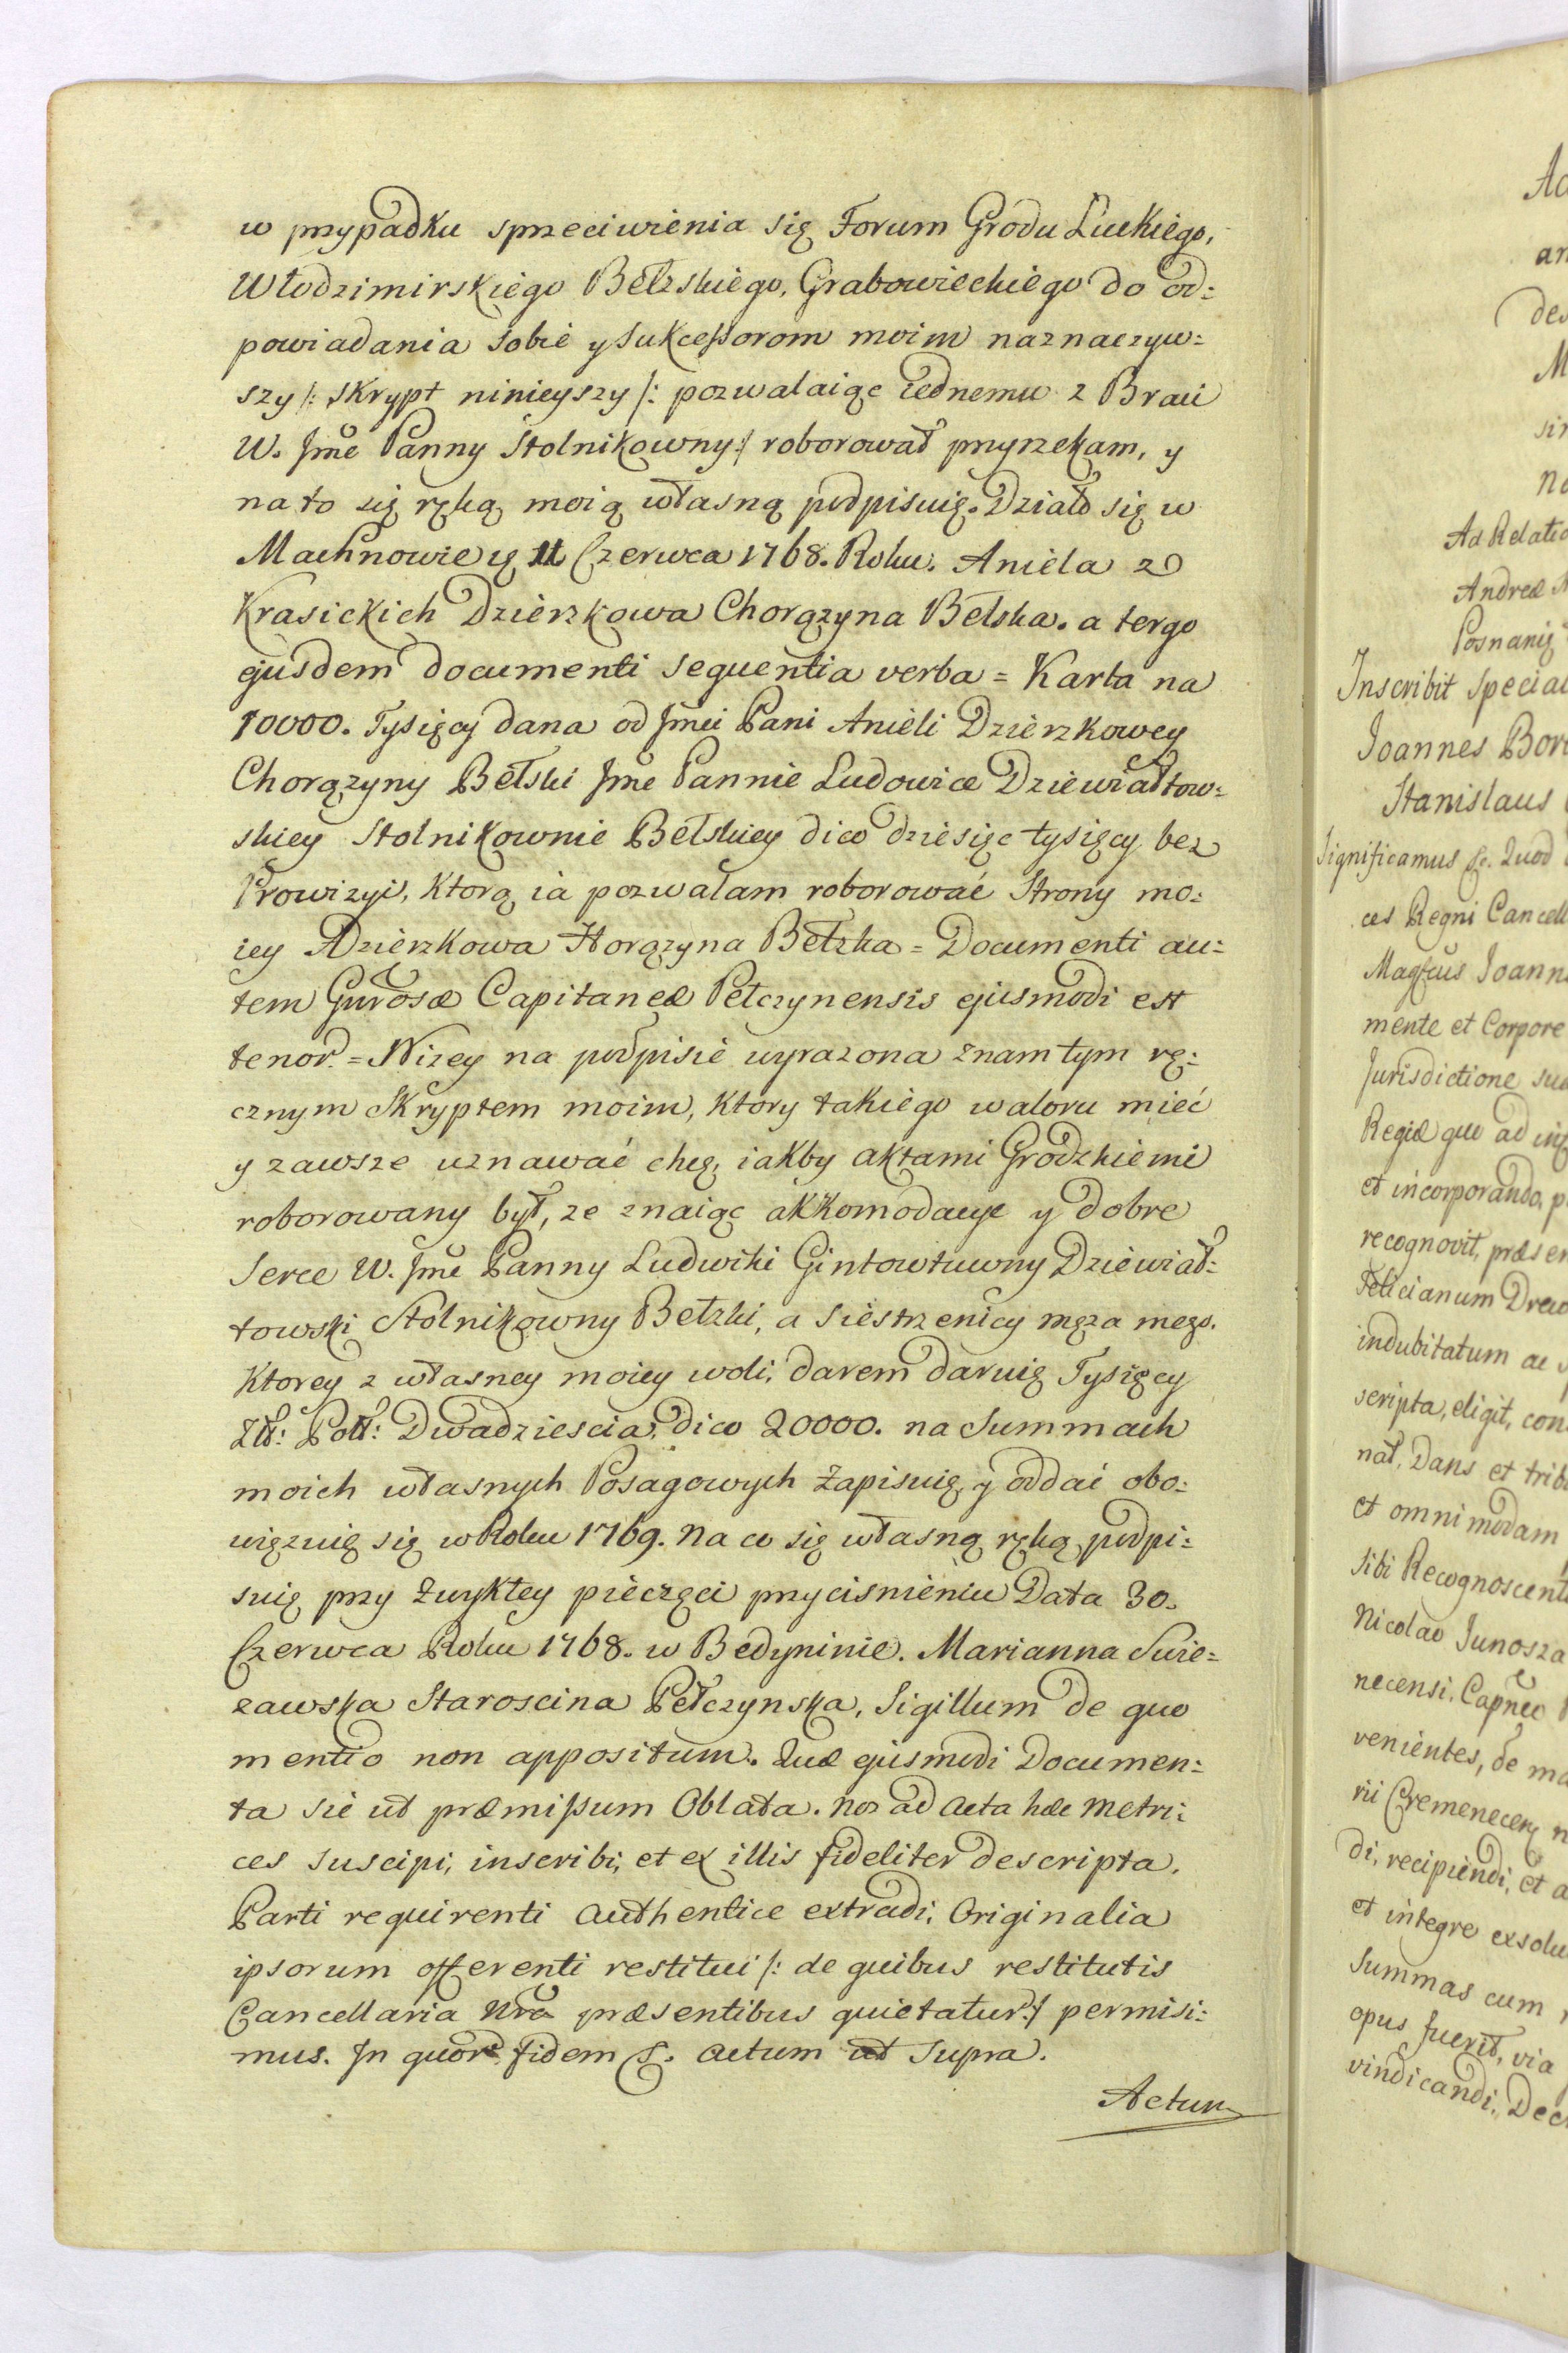 w przypadku sprzeciwienia się Forum Grodu Łuckiego,
Włodzimirskiego Bełzskiego, Grabowieckiego do od:
powiadania sobie y Sukcessorom moim naznaczyw:
szy /: skrypt ninieyszy /: pozwalaiąc iednemu z Braci
W. Jmc Panny Stolnikowny :/ roborować przyrzekam, y
na to się ręką moią własną podpisuię. Działo się w
Machnowie 11 Czerwca 1768. Roku. Aniela z
Krasickich Dzierzkowa Chorązyna Bełska. a tergo
ejusdem documenti sequentia verba = Karta na
10000. Tysięcy dana od Jmci Pani Anieli Dzierzkowey
Chorązyny Bełski Jmc Pannie Ludowice Dziewiałtow:
skiey Stolnikownie Bełskiey dico dziesięc tysięcy bez
Prowizyi, ktorą ia pozwalam roborować Strony mo:
iey ADzierzkowa Horązyna Bełzka = Documenti au:
tem Gnrosæ Capitaneæ Pełczynensis ejusmodi est
tenor. = Nizey na podpisie wyrazona znam tym rę:
cznym Skryptem moim, ktory takiego waloru mieć
y zawsze uznawać chcę, iakby aktami Grodzkiemi
roborowany był, ze znaiąc akkomodacye y dobre
Serce W. Jmc Panny Ludwiki Gintowtuwny Dziewiał:
towski Stolnikowny Bełzki, a Siestrzenicy męza mego.
Ktorey z własney moiey woli, darem daruię Tysięcy
Złł: Poll: Dwadziescia, dico 20000. na Summach
moich własnych Posagowych Zapisuię, y oddać obo:
więzuię się w Roku 1769. Na co się własną ręką podpi:
suię przy Zwykłey pieczęci przycisnieniu Data 30.
Czerwca Roku 1768. w Bedyninie. Marianna Swie=
zawska Staroscina Pełczynska, Sigillum de quo
mentio non appositum. Quæ ejusmodi Documen:
ta sic ut præmissum Oblata. Nos ad Acta hæc Metri:
ces suscipi, inscribi, et ex illis fideliter descripta,
Parti requirenti authentice extradi, Originalia
ipsorum offerenti restitui /: de quibus restitutis
Cancellaria Nra præsentibus quietatur :/ permisi:
mus. In quor. fidem &. Actum ut Supra.
Actum
Ad Relatio
Andreæ
Posnanię
Inscribit Special
Joannes Bor
Stanislaus
Significamus &. Quod
ces Regni Cancell
Joann
mente et Corpore
Jurisdictione su
et incorporando, p
recognovit, præsen
Felicianum Drew
indubitatum ac
scripta, eligit, con
nat, Dans et trib
et omnimodam
sibi Recognoscenti
Nicolao Junosza
necensi, Capneo
venientes, de ma
rii Cremenecen,
di, recipiendi, et a
et integre exsolu
Summas cum
opus fuerit, via
vindicandi, Dec